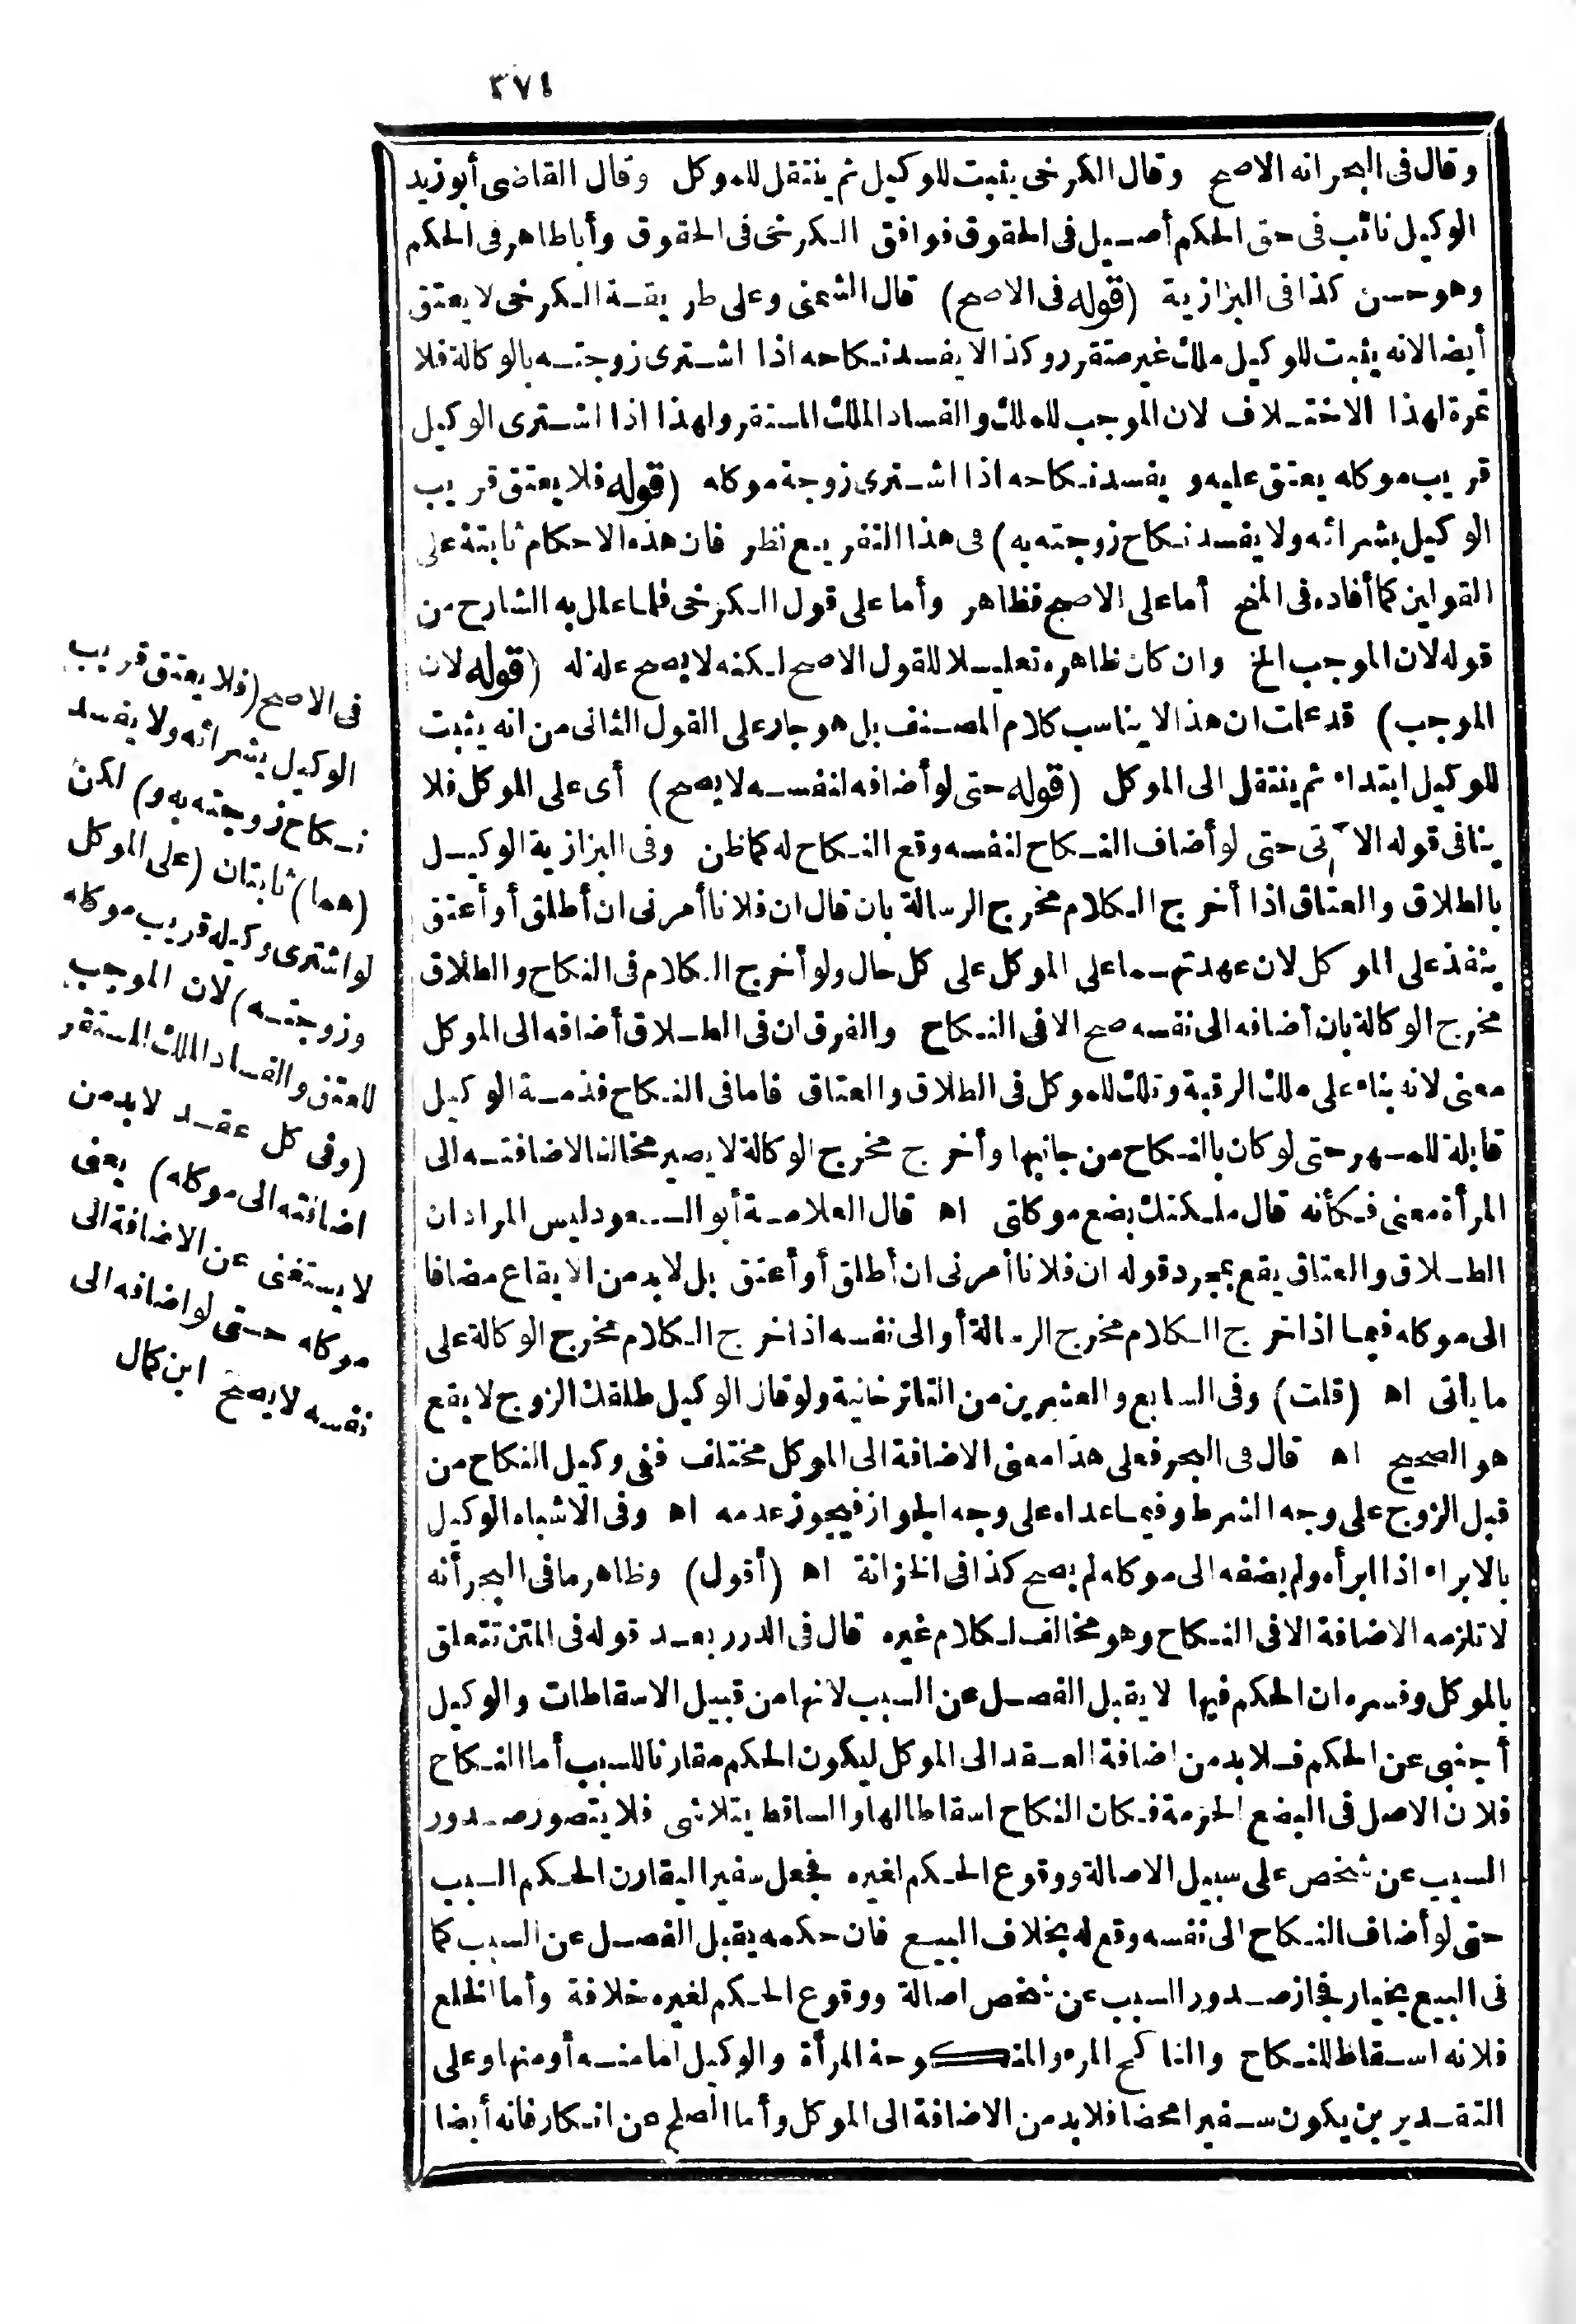 ٣٧٤
وقال فى البحر انه الاصح وقال الكرخى يثبت للوكيل ثم ينتقل للموكل وقال القاضى أبو زيد
الوكيل نائب فى حق الحكم أصيل فى الحقوق فوافق الكرخى فى الحقوق وأبا طاهر فى الحكم
وهو حسن كذا فى البزازية (قوله فى الاصح) قال الشمنى وعلى طريقة الكرخى لا يعتق
أيضا لانه يثبت للوكيل ملك غير متقرر وكذا لا يفسد نكاحه اذا اشترى زوجته بالوكالة فلا
ثمرة لهذا الاختلاف لان الموجب للملك والفساد الملك المستقر ولهذا اذا اشترى الوكيل
قريب موكله يعتق عليه ويفسد نكاحه اذا اشترى زوجة موكله (قوله فلا يعتق قريب
الوكيل بشرائه ولا يفسد نكاح زوجته به) فى هذا التفريع نظر فان هذه الاحكام ثابتة على
القولين كما أفاده فى المنح أما على الاصح فظاهر وأما على قول الكرخى فلما علل به الشارح من
قوله لان الموجب الخ وان كان ظاهره تعليلا للقول الاصح لكنه لا يصح علة له (قوله لان
الموجب) قد علمت ان هذا لا يناسب كلام المصنف بل هو جار على القول الثانى من انه يثبت
للوكيل ابتداء ثم ينتقل الى الموكل (قوله حتى لو أضافه لنفسه لا يصح) أى على الموكل فلا
ينافى قوله الآتى حتى لو أضاف النكاح لنفسه وقع النكاح له كما ظن وفى البزازية الوكيل
بالطلاق والعتاق اذا أخرج الكلام مخرج الرسالة بان قال ان فلانا أمرنى ان أطلق أو أعتق
ينفذ على الموكل لان عهدتهما على الموكل على كل حال ولو أخرج الكلام فى النكاح والطلاق
مخرج الوكالة بان أضافه الى نفسه صح الا فى النكاح والفرق ان فى الطلاق أضافه الى الموكل
معنى لانه بناء على ملك الرقبة وتلك للموكل فى الطلاق والعتاق فاما فى النكاح فذمة الوكيل
قابلة للمهر حتى لو كان بالنكاح من جانبها وأخرج مخرج الوكالة لا يصير مخالفا لاضافته الى
المرأة معنى فكأنه قال ملكتك بضع موكلتى اه قال العلامة أبو السعود ليس المراد ان
الطلاق والعتاق يقع بمجرد قوله ان فلانا أمرنى ان أطلق أو أعتق بل لا بد من الايقاع مضافا
الى موكله فيما اذا خرج الكلام مخرج الرسالة أو الى نفسه اذا خرج الكلام مخرج الوكالة على
ما يأتى اه (قلت) وفى السابع والعشرين من التاترخانية ولو قال الوكيل طلقك الزوج لا يقع
هو الصحيح اه قال فى البحر فعلى هذا معنى الاضافة الى الموكل مختلف ففى وكيل النكاح من
قبل الزوج على وجه الشرط وفيما عداه على وجه الجواز فيجوز عدمه اه وفى الاشباه الوكيل
بالابراء اذا ابرأه ولم يضفه الى موكله لم يصح كذا فى الخزانة اه (أقول) وظاهر ما فى البحر أنه
لا تلزمه الاضافة الا فى النكاح وهو مخالف لكلام غيره قال فى الدرر بعد قوله فى المتن تتعلق
بالموكل وفسره ان الحكم فيها لا يقبل الفصل عن السبب لانها من قبيل الاسقاطات والوكيل
أجنبى عن الحكم فلا بد من اضافة العقد الى الموكل ليكون الحكم مقارنا للسبب أما النكاح
فلان الاصل فى البضع الحرمة فكان النكاح اسقاطا لها والساقط يتلاشى فلا يتصور صدور
السبب عن شخص على سبيل الاصالة ووقوع الحكم لغيره فجعل سفيرا ليقارن الحكم السبب
حتى لو أضاف النكاح الى نفسه وقع له بخلاف البيع فان حكمه يقبل الفصل عن السبب كما
فى البيع بخيار فجاز صدور السبب عن شخص اصالة ووقوع الحكم لغيره خلافة وأما الخلع
فلانه اسقاط للنكاح والناكح المرء والمنكوحة المرأة والوكيل اما منه أو منها وعلى
التقديرين يكون سفيرا محضا فلا بد من الاضافة الى الموكل وأما الصلح عن انكار فانه أيضا
فى الاصح (فلا يعتق قريب
الوكيل بشرائه ولا يفسد
نكاح زوجته به و) لكن
(هما) ثابتان (على الموكل
لو اشترى وكيله قريب موكله
وزوجته) لان الموجب
للعتق والفساد الملك المستقر
(وفى كل عقد لا بد من
اضافته الى موكله) يعنى
لا يستغنى عن الاضافة الى
موكله حتى لو اضافه الى
نفسه لا يصح ابن كمال